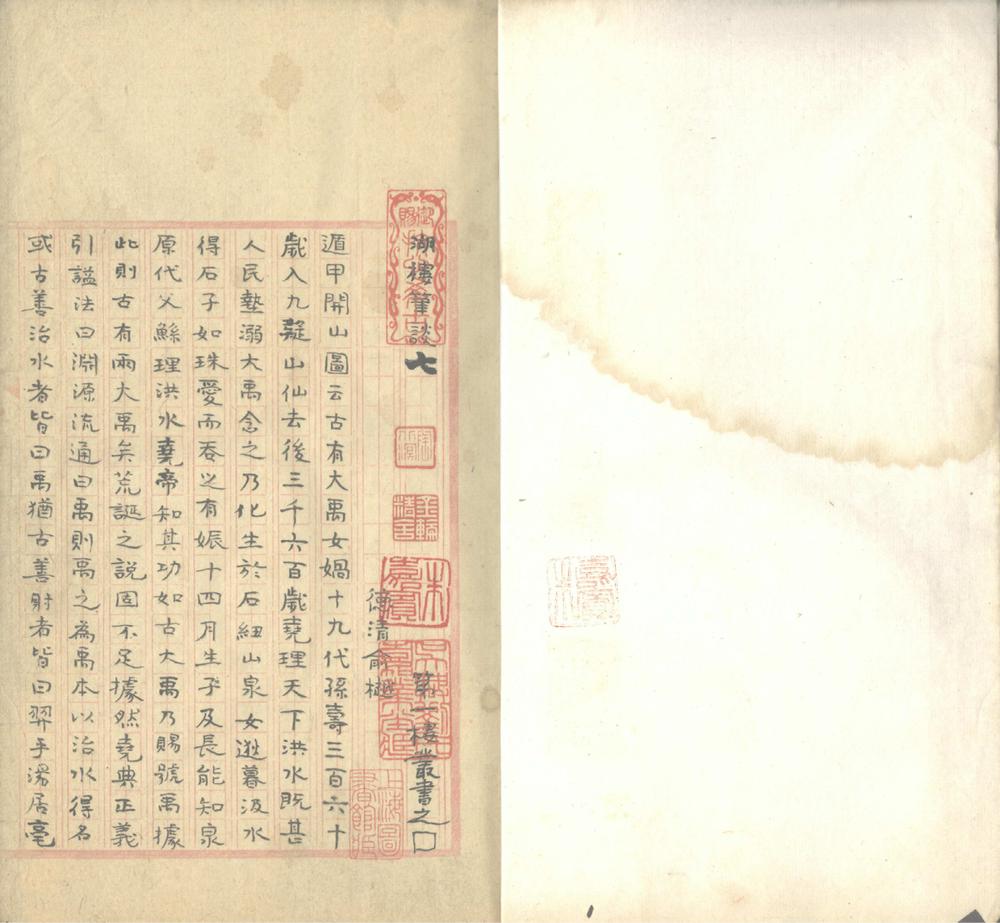 湖樓筆談七
第一樓叢書之口
德清俞樾
遁甲開山圖云古有大禹女媧十九代孫壽三百六十
歲入九嶷山仙去後三千六百歲堯理天下洪水既甚
人民墊溺大禹念之乃化生於石紐山泉女遊暮汲水
得石子如珠愛而吞之有娠十四月生子及長能知泉
原代父鯀理洪水堯帝知其功如古大禹乃賜號禹據
此則古有兩大禹矣荒誕之說固不足據然堯典正義
引謚法曰淵源流通曰禹則禹之為禹本以治水得名
或古善治水者皆曰禹猶古善射者皆曰羿乎湯居亳